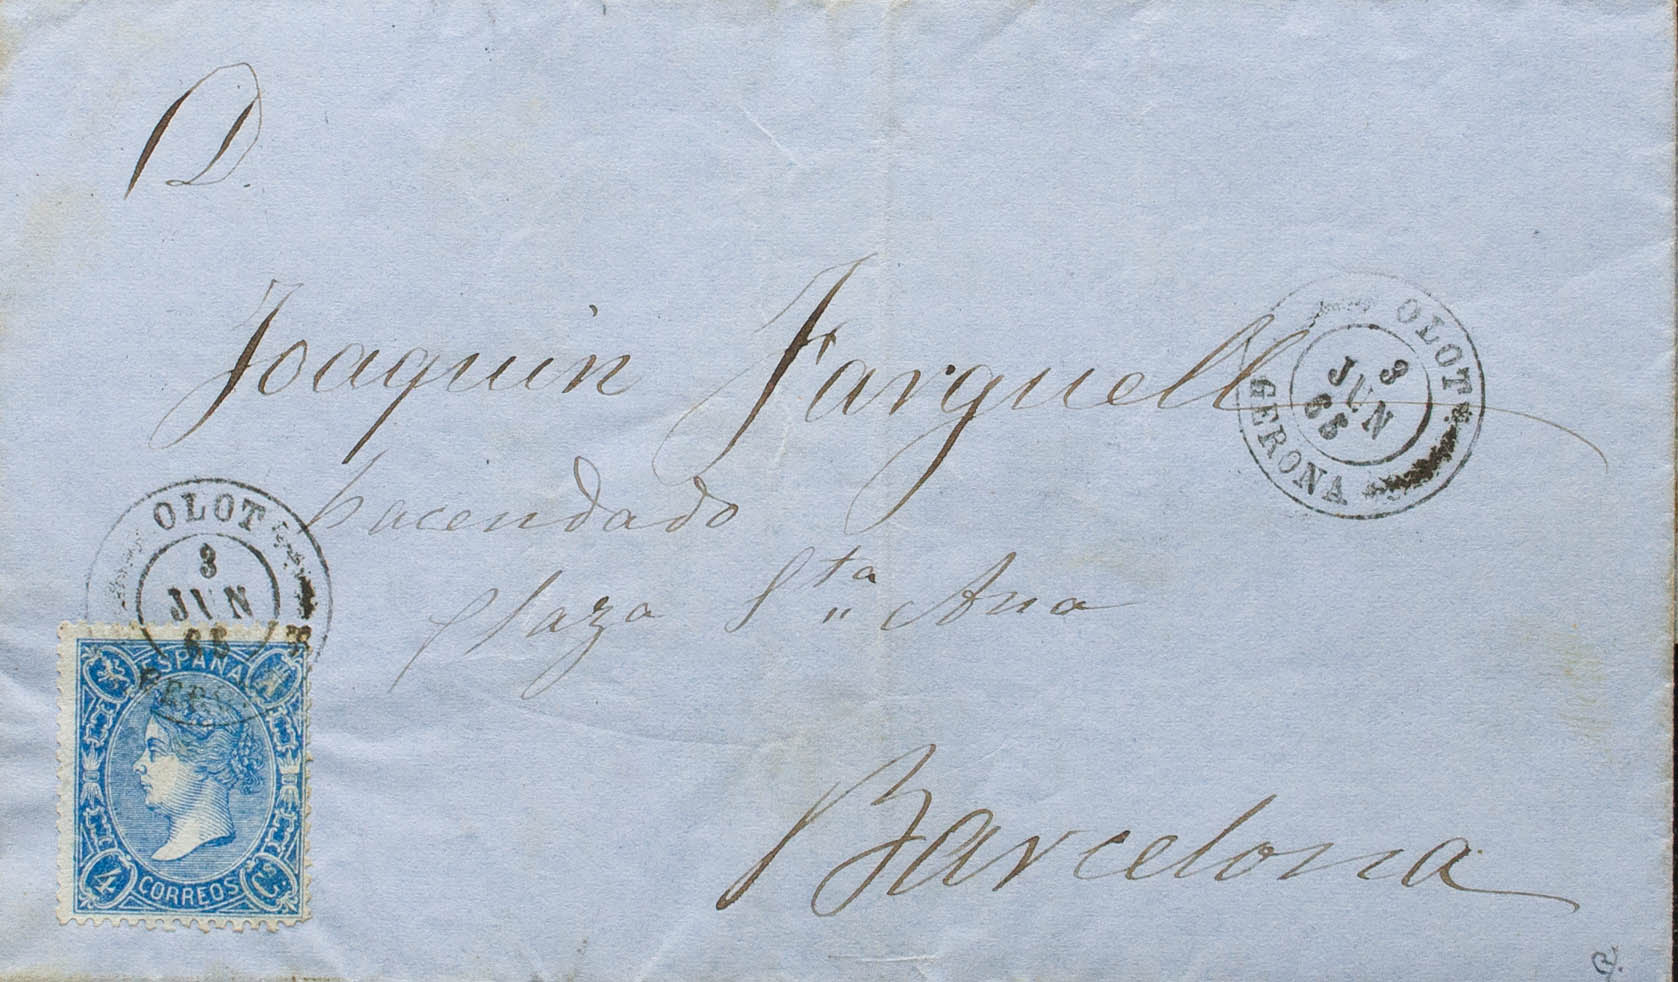 D.
Joaquin Farguell
hacendado
plaza Sta Ana
Barcelona
OLOT
3
JUN
65
GERONA
OLOT
3
JUN
65
ESPAÑA
4 CORREOS Cs